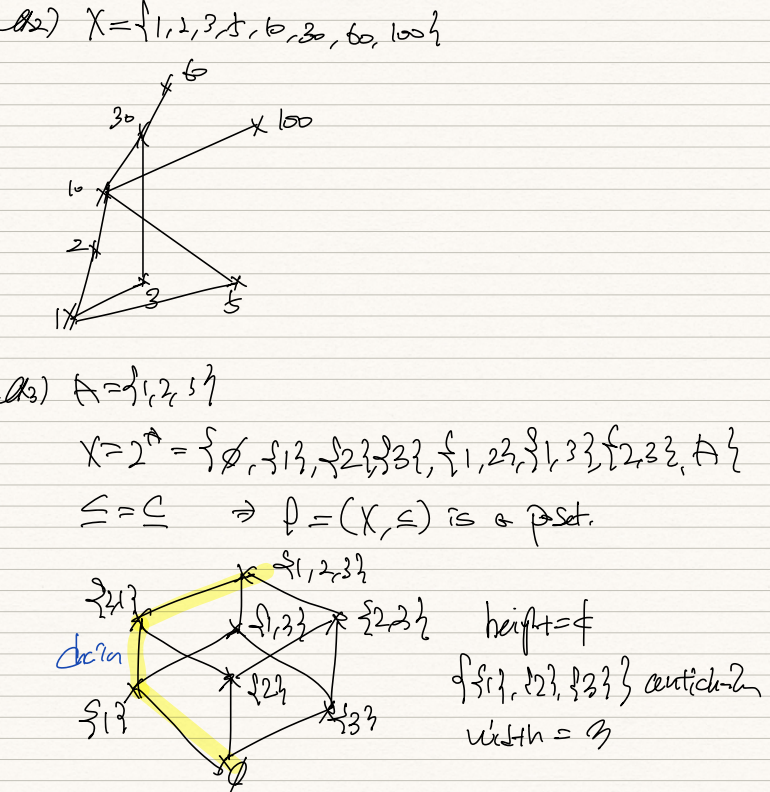 ex2) X={1,2,3,5,10,30,60,100}
60
30
100
10
2
3
5
1
ex3) A={1,2,3}
X=2^A={∅,{1},{2},{3},{1,2},{1,3},{2,3},A}
≤=⊆ ⇒ P=(X,≤) is a poset.
{1,2,3}
{2,1}
{1,3}
{2,3}
height=4
chain
{2}
{{1},{2},{3}} antichain
{1}
{3}
width=3
∅